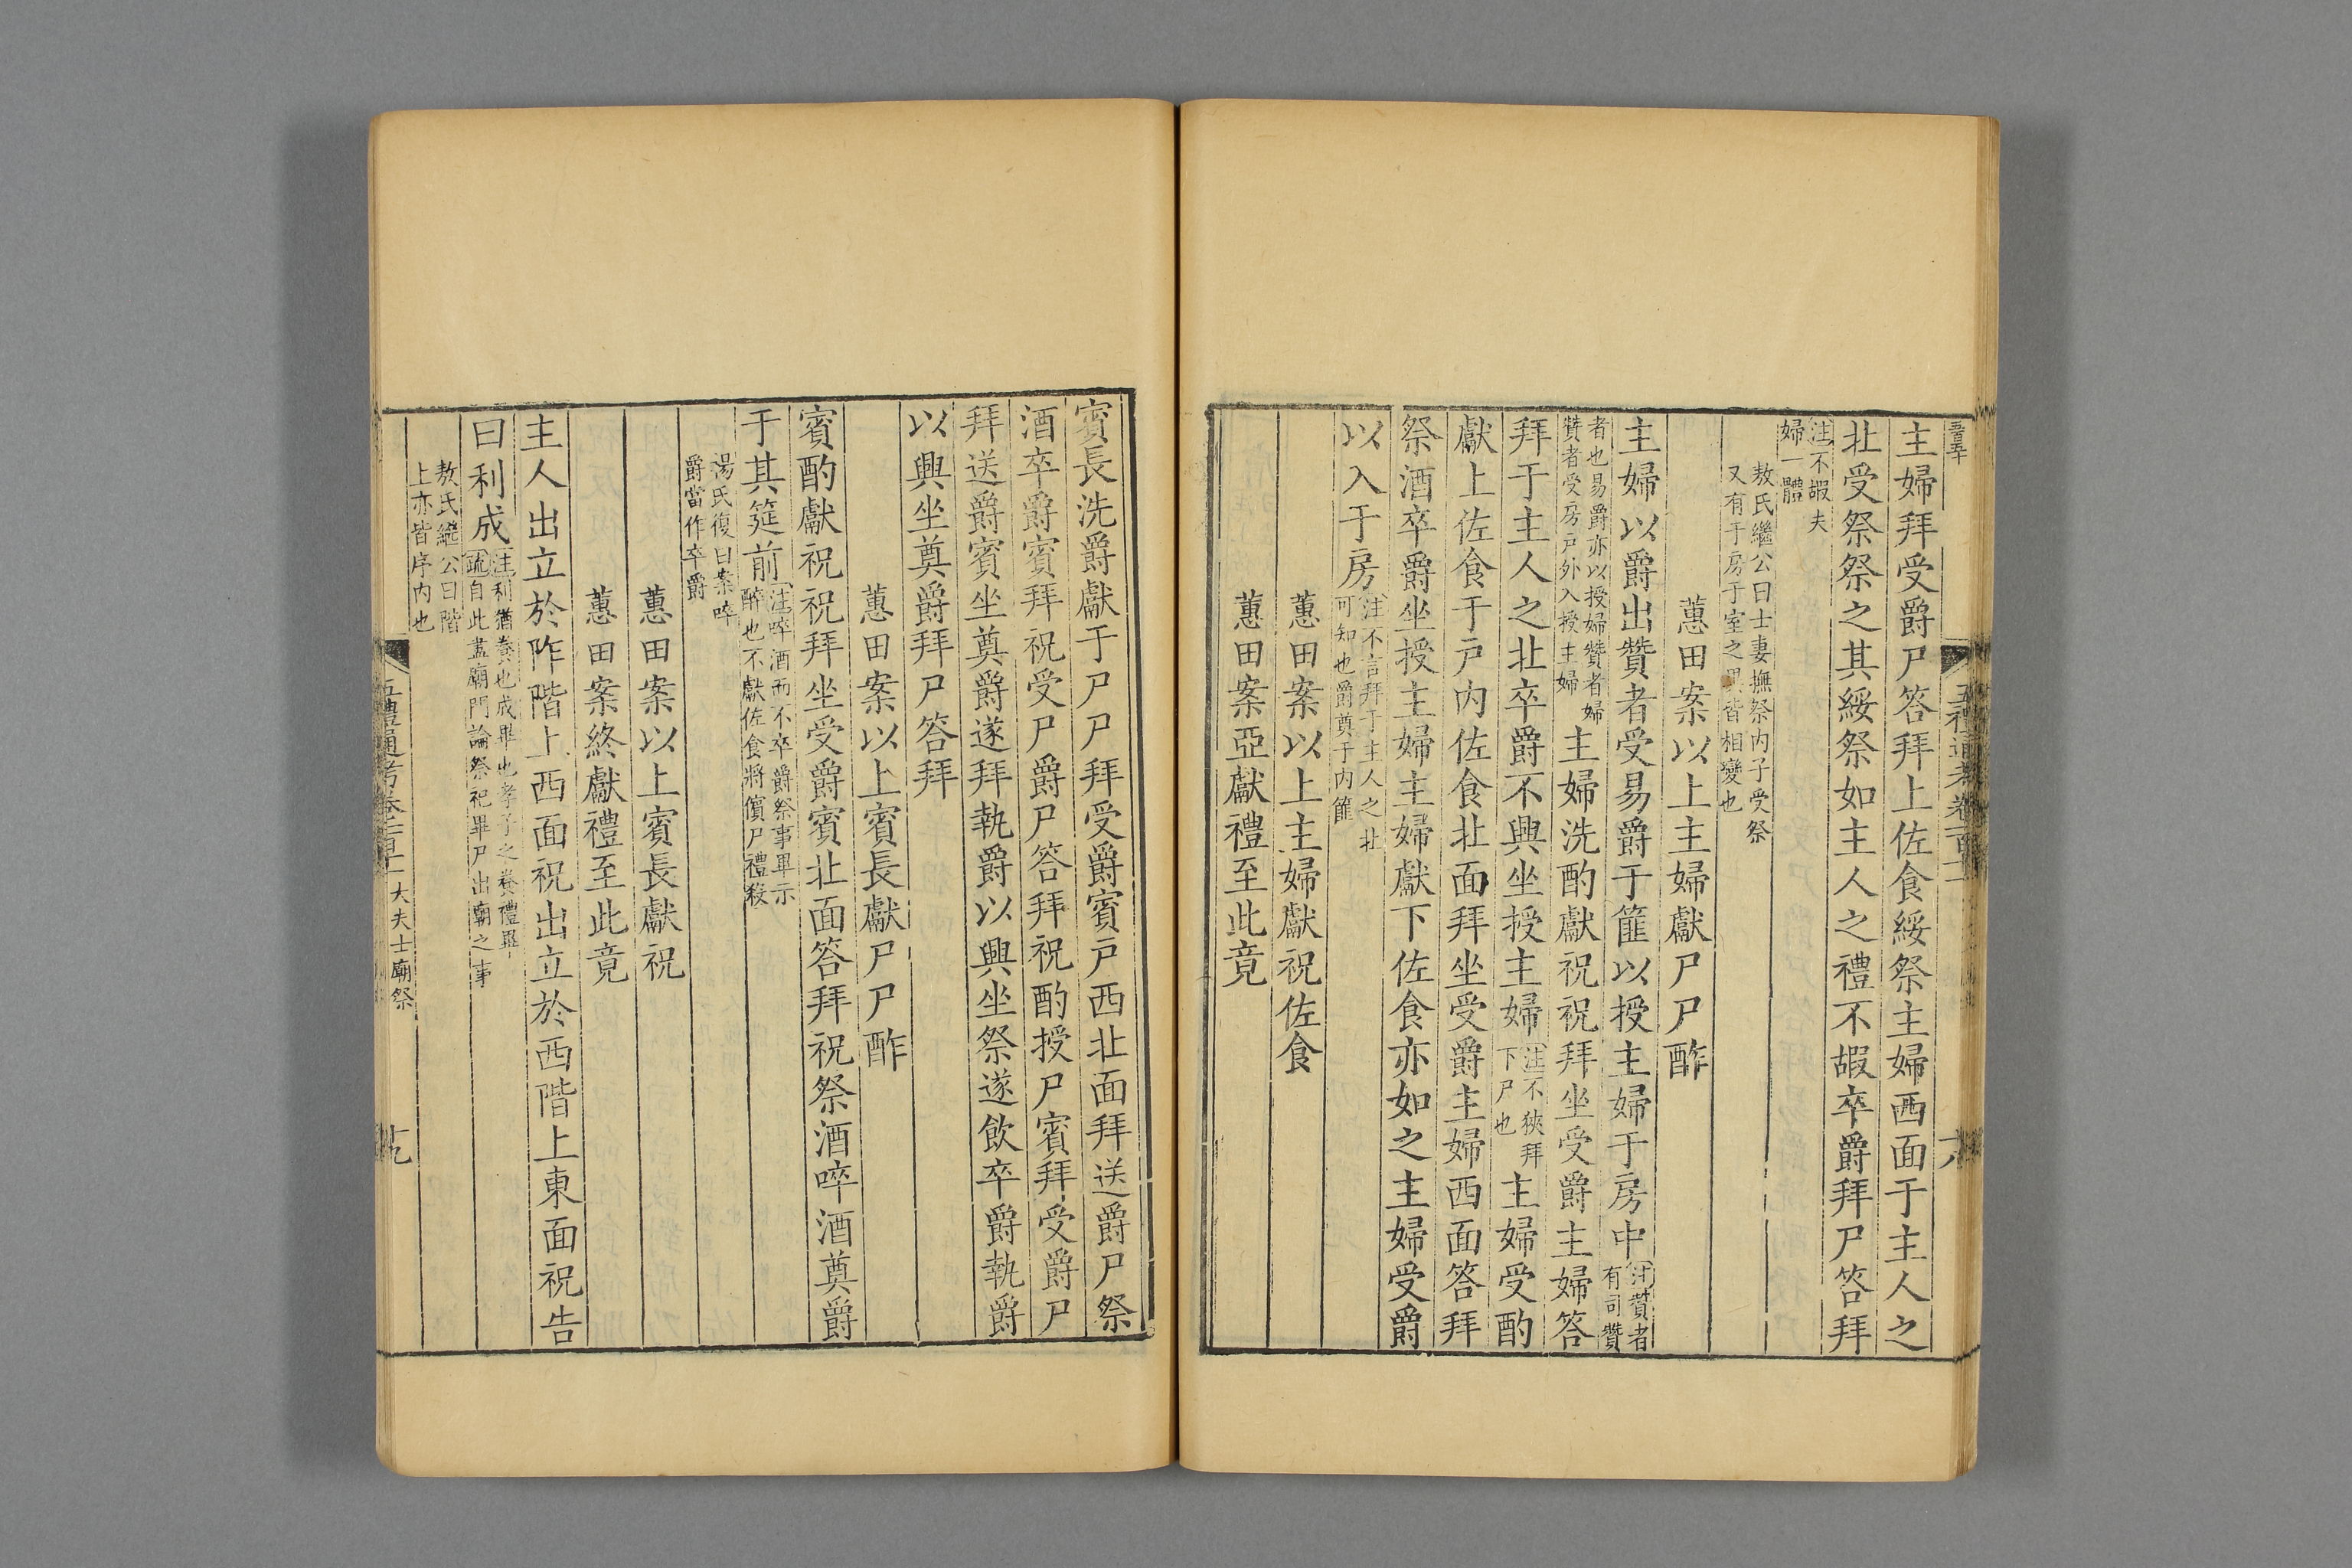 主婦拜受爵尸答拜上佐食綏祭主婦西面于主人之
北受祭祭之其綏祭如主人之禮不嘏卒爵拜尸答拜
注不嘏夫
婦一體
敖氏繼公曰士妻撫祭内子受祭
又有于房于室之異皆相變也
蕙田案以上主婦獻尸尸酢
主婦以爵出贊者受易爵于篚以授主婦于房中注贊者
有司贊
者也易爵亦以授婦贊者婦
贊者受房戸外入授主婦
主婦洗酌獻祝祝拜坐受爵主婦答
拜于主人之北卒爵不興坐授主婦注不狹拜
下尸也
主婦受酌
獻上佐食于戸内佐食北面拜坐受爵主婦西面答拜
祭酒卒爵坐授主婦主婦獻下佐食亦如之主婦受爵
以入于房注不言拜于主人之北
可知也爵奠于内篚
蕙田案以上主婦獻祝佐食
蕙田案亞獻禮至此竟
賓長洗爵獻于尸尸拜受爵賓戸西北面拜送爵尸祭
酒卒爵賓拜祝受尸爵尸答拜祝酌授尸賓拜受爵尸
拜送爵賓坐奠爵遂拜執爵以興坐祭遂飲卒爵執爵
以興坐奠爵拜尸答拜
蕙田案以上賓長獻尸尸酢
賓酌獻祝祝拜坐受爵賓北面答拜祝祭酒啐酒奠爵
于其筵前注啐酒而不卒爵祭事畢示
醉也不獻佐食將儐尸禮殺
湯氏復曰案啐
爵當作卒爵
蕙田案以上賓長獻祝
蕙田案終獻禮至此竟
主人出立於阼階上西面祝出立於西階上東面祝告
曰利成注利猶養也成畢也孝子之養禮畢
疏自此盡廟門論祭祀畢尸出廟之事
敖氏繼公曰階
上亦皆序内也
五禮通考卷一百十一 大夫士廟祭 十九